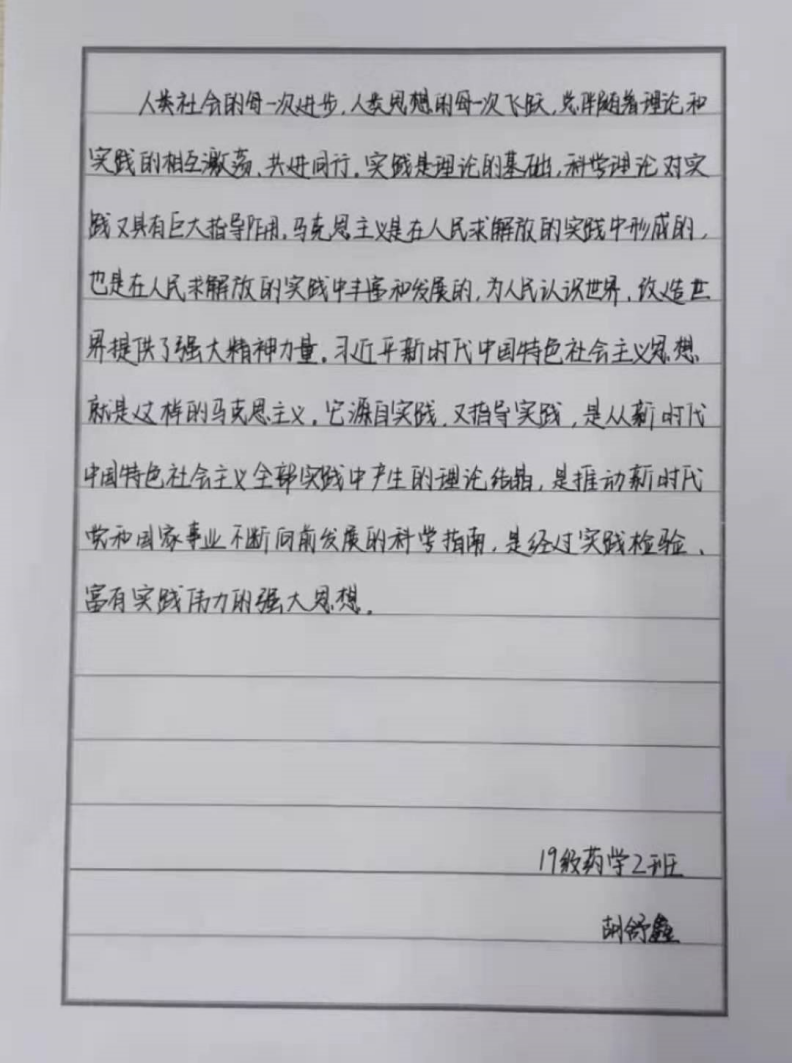 人类社会的每一次进步，人类思想的每一次飞跃，总伴随着理论和
实践的相互激荡、共进同行。实践是理论的基础，科学理论对实
践又具有巨大指导作用。马克思主义是在人民求解放的实践中形成的，
也是在人民求解放的实践中丰富和发展的，为人民认识世界、改造世
界提供了强大精神力量。习近平新时代中国特色社会主义思想
就是这样的马克思主义。它源自实践、又指导实践，是从新时代
中国特色社会主义全部实践中产生的理论结晶，是推动新时代
党和国家事业不断向前发展的科学指南，是经过实践检验、
富有实践伟力的强大思想。
19级药学2班
胡舒鑫